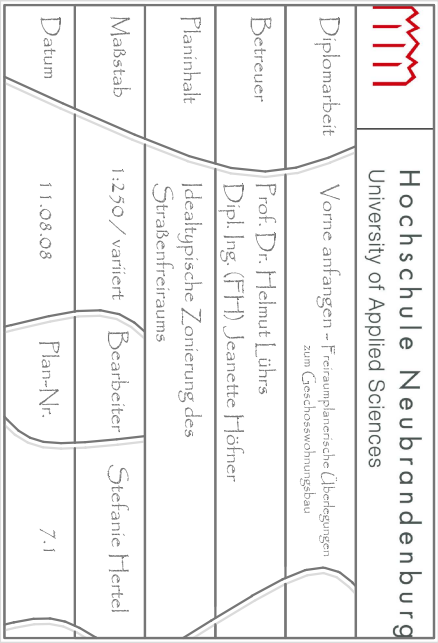 Hochschule Neubrandenburg
University of Applied Sciences
Diplomarbeit
Vorne anfangen - Freiraumplanerische Überlegungen
zum Geschosswohnungsbau
Betreuer
Prof. Dr. Helmut Lührs
Dipl. Ing. (FH) Jeanette Höfner
Planinhalt
Idealtypische Zonierung des
Straßenfreiraums
Maßstab
1:250 / variiert
Bearbeiter
Stefanie Hertel
Datum
11.08.08
Plan-Nr.
7.1